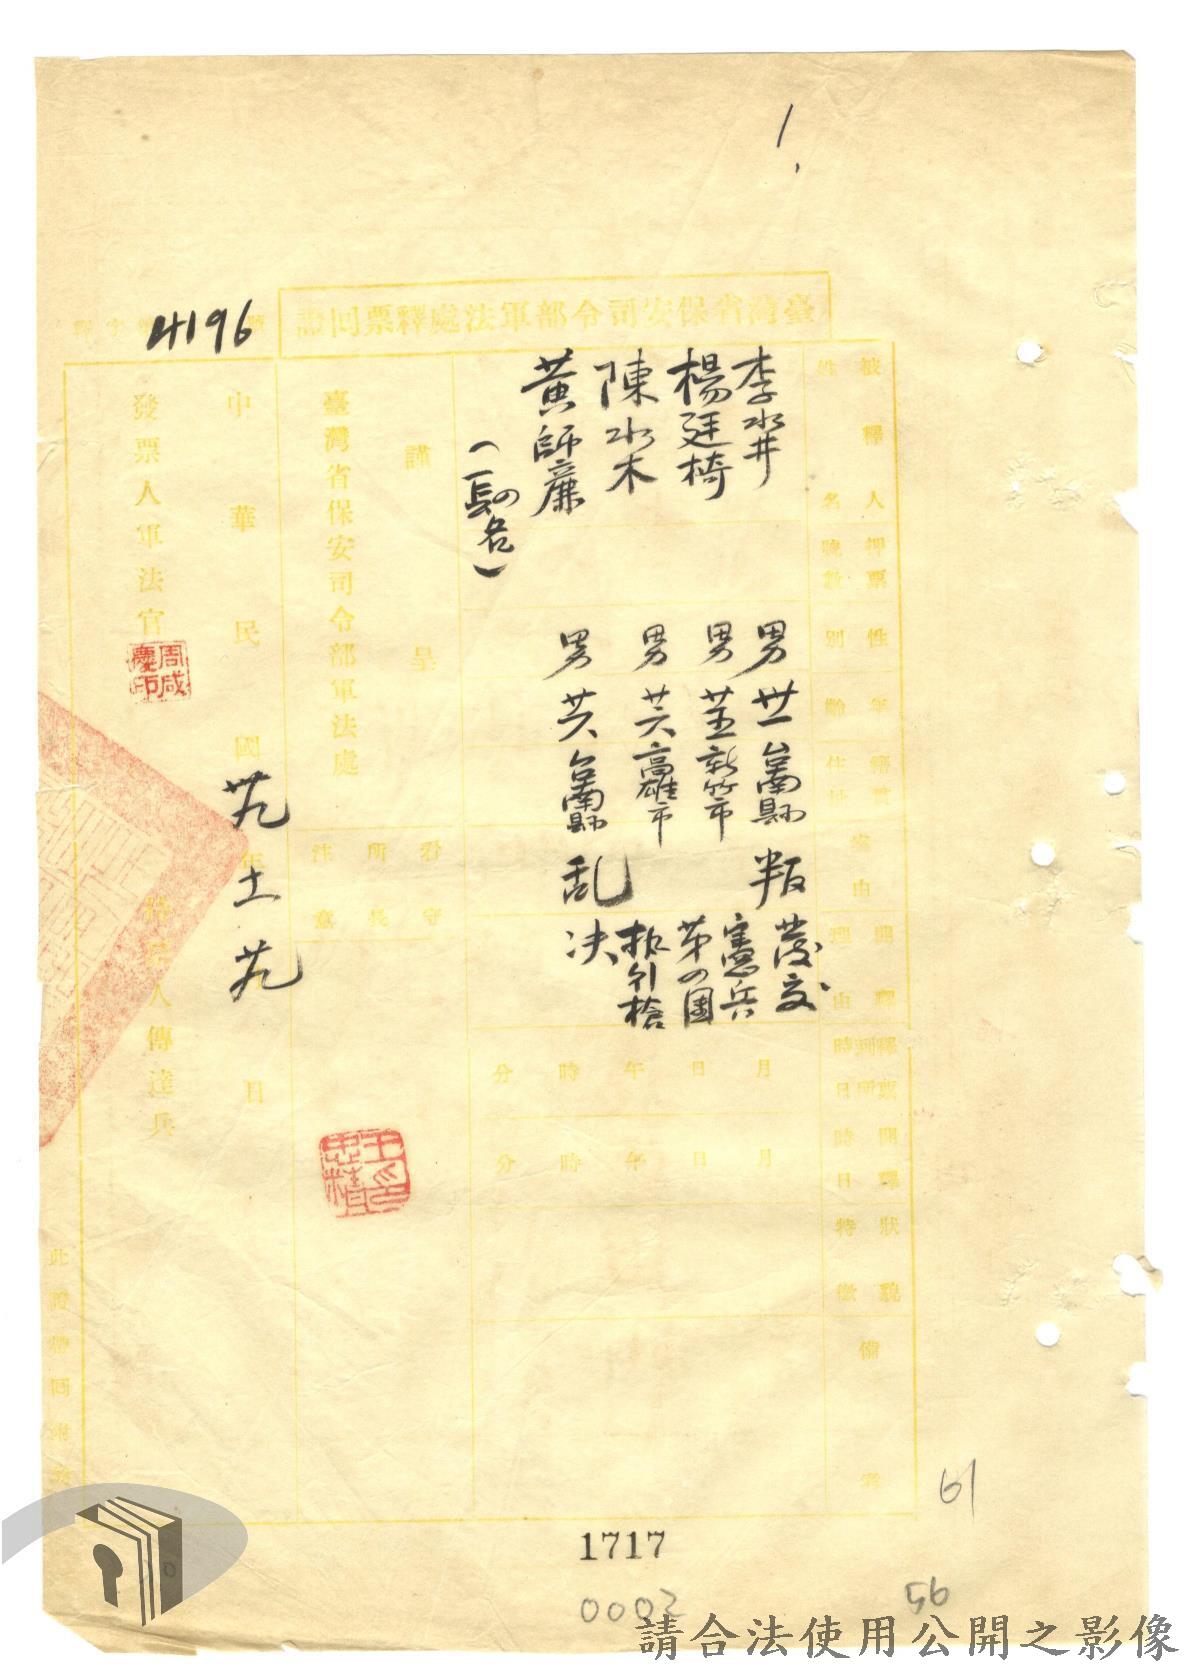 1.
4196
臺灣省保安司令部軍法處釋票回證
被釋人
姓名
押票
號數
性別
年齡
籍貫
住址
案由
開釋
理由
釋票
到所
時日
開釋
時日
狀貌
特徵
備考
李水井
男
卅一
台南縣
叛
楊廷椅
男
廿五
新竹市
陳水木
男
廿六
高雄市
黃師廉
男
廿六
台南縣
乱
發交
憲兵
第の團
执行槍
决
月日午時分
月日午時分
謹呈
臺灣省保安司令部軍法處
看守
所長
注意
中華民國卅九年十一月廿九日
發票人軍法官
周咸
慶印
人傳達兵
此證帶回
1717
0002
61
56
請合法使用公開之影像